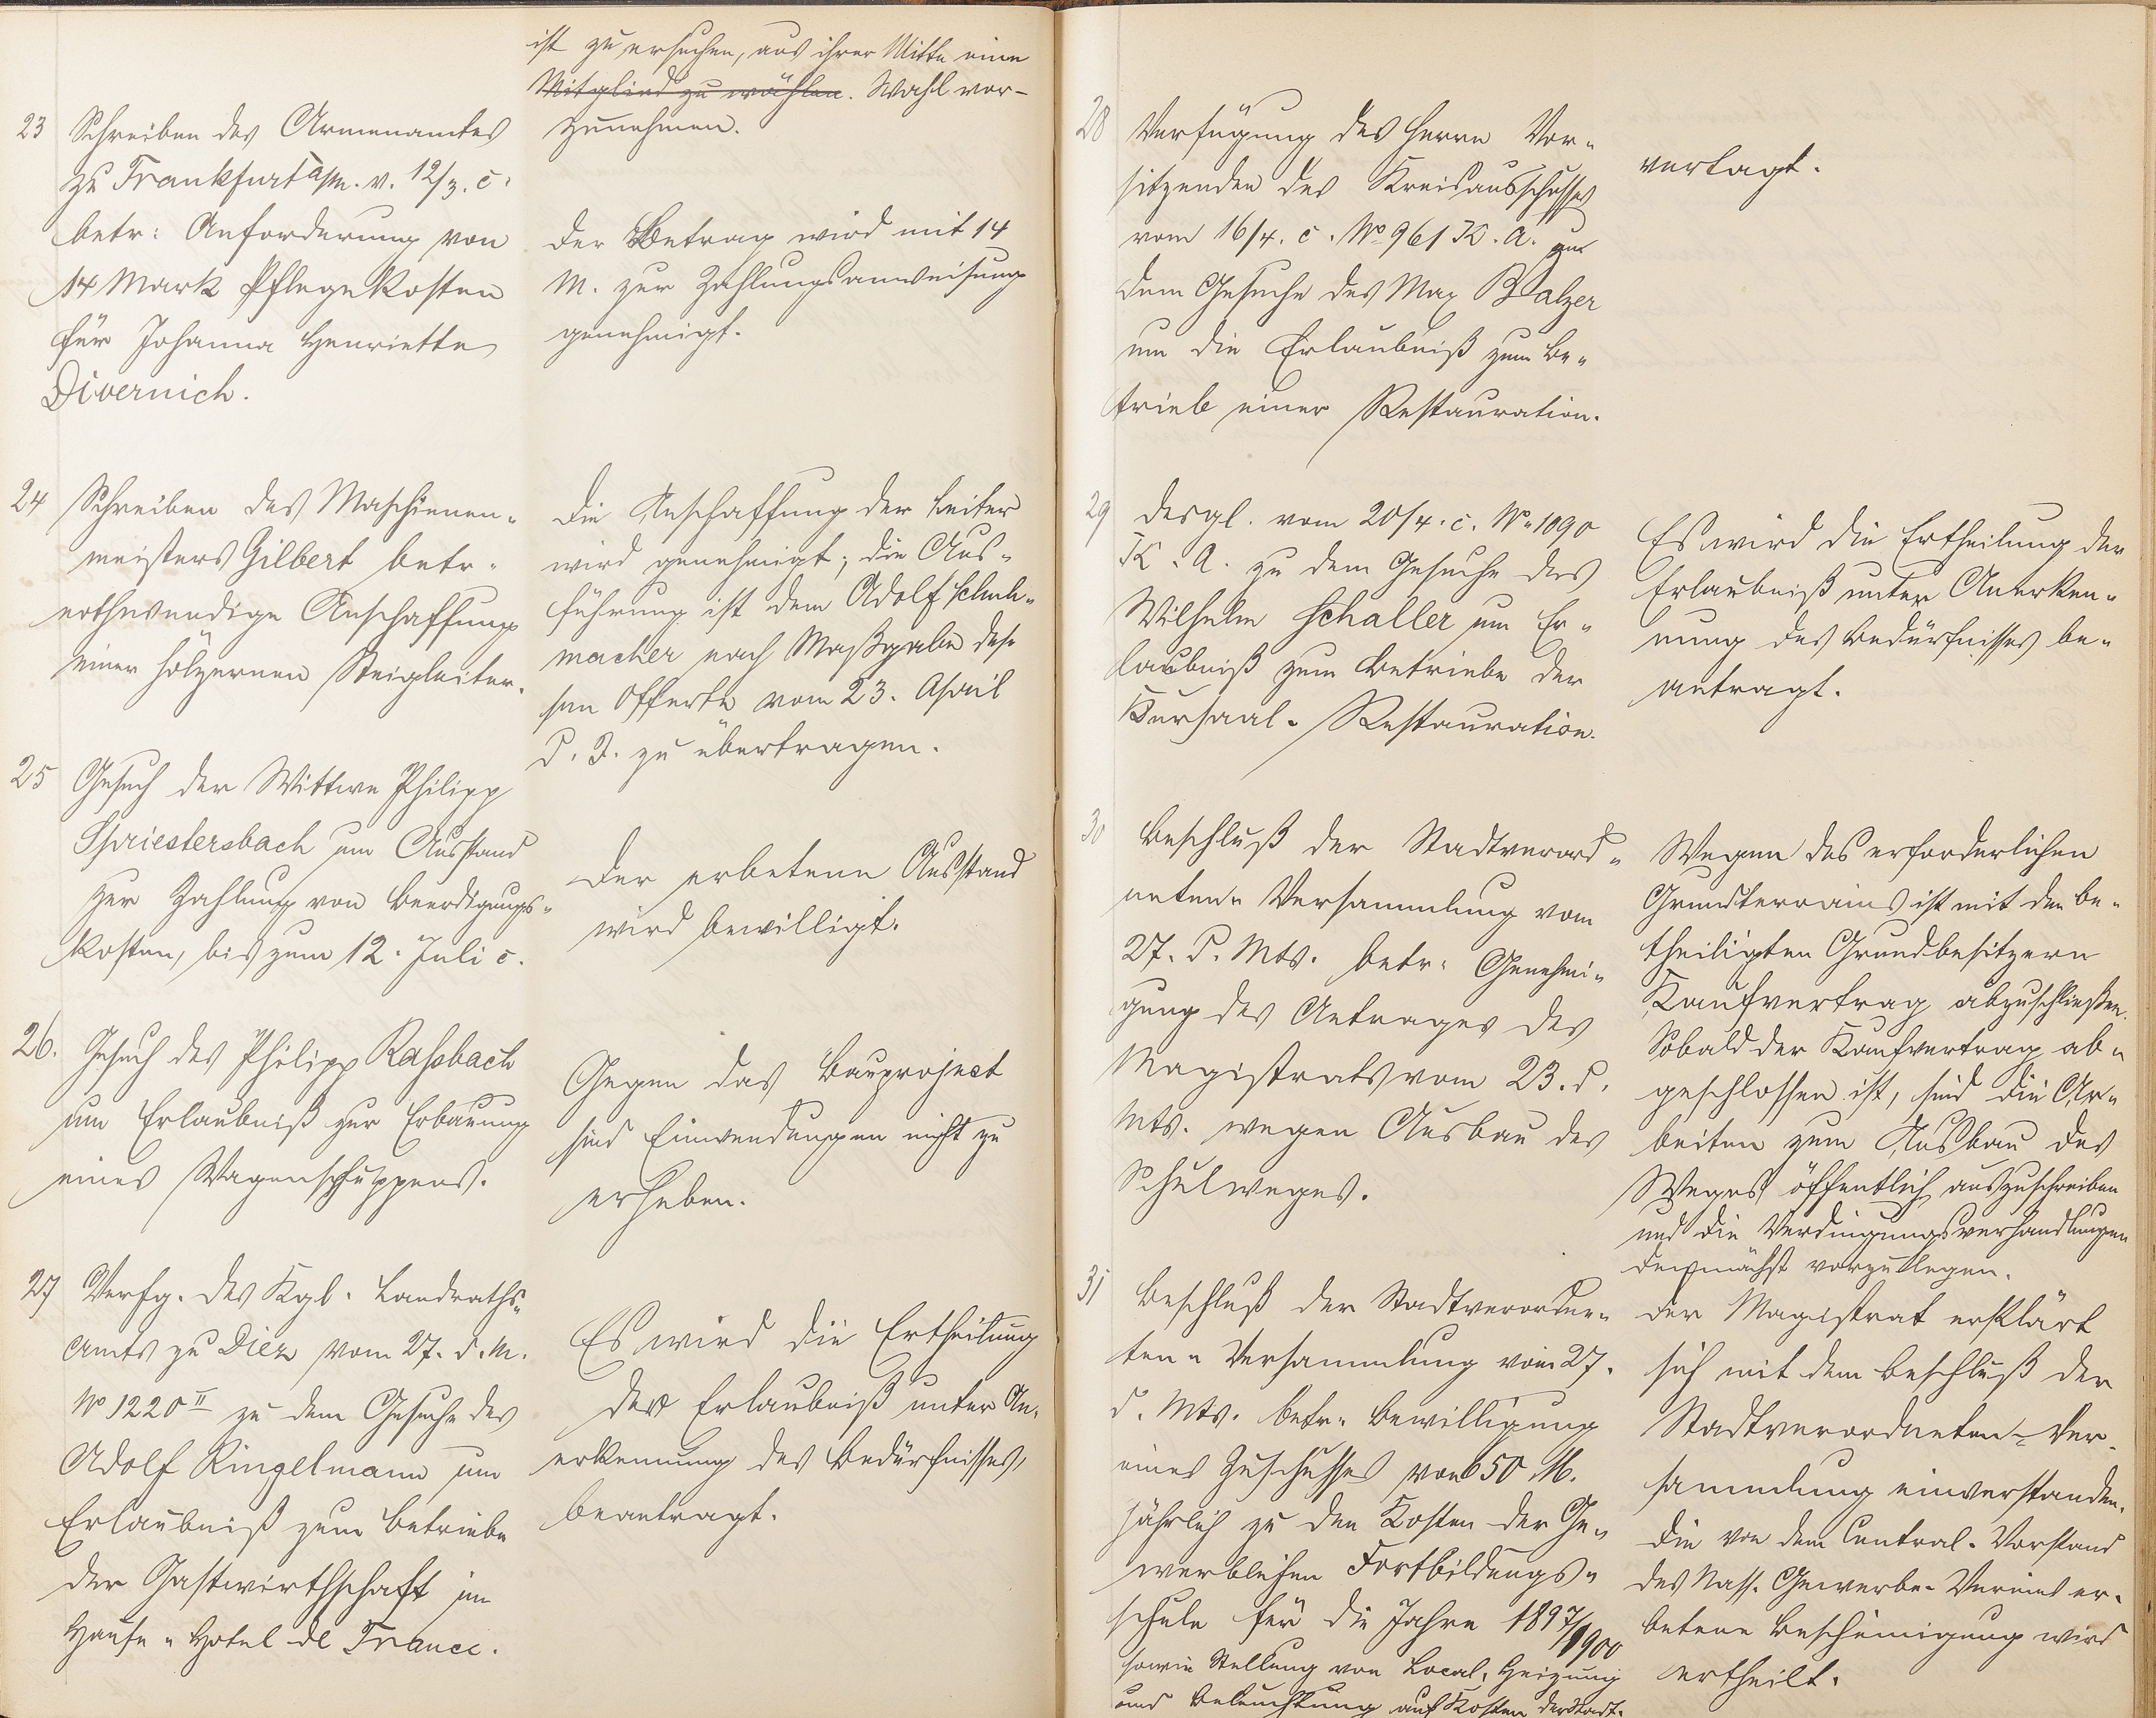 ist zu ersuchen, aus ihrer Mitte eine
Mitglied zu wählen. Wahl vor-
zunehmen.
23 Schreiben des Armenamtes
zu Frankfurt a/M. v. 12/3. c.
betr: Anforderung von
14 Mark Pflegekosten
für Johanna Henriette
Divernich.
Der Betrag wird mit 14
M. zur Zahlungsanweisung
genehmigt.
24 Schreiben des Maschienen-
meisters Gilbert betr.
nothwendige Anschaffung
einer hölzernen Steigleiter.
Die Anschaffung der Leiter
wird genehmigt; die Aus-
führung ist dem Adolf Schuh-
macher nach Maßgabe des-
sen Offerte vom 23. April
d. J. zu übertragen.
25 Gesuch der Wittwe Philipp
Spriestersbach um Ausstand
zur Zahlung von Beerdigungs-
kosten, bis zum 12. Juli c.
Der erbetene Ausstand
wird bewilligt.
26. Gesuch des Philipp Rassbach
um Erlaubniß zur Erbauung
eines Wagenschuppens.
Gegen das Bauproject
sind Einwendungen nicht zu
erheben.
27 Verfg. des Kgl. Landraths-
amts zu Diez vom 27. d. M.
No 1220 II zu dem Gesuche des
Adolf Ringelmann um
Erlaubniß zum Betriebe
der Gastwirthschaft im
Hause "Hotel de France.
Es wird die Ertheilung
der Erlaubniß unter An-
erkennung des Bedürfnisses,
beantragt.
28 Verfügung des Herrn Vor-
sitzenden des Kreisausschusses
vom 16/4. c. No 961 K. A. zu
dem Gesuche des Max Balzer
um die Erlaubniß zum Be-
trieb einer Restauration.
vertagt.
29 desgl. vom 20/4. c. No 1090
K. A. zu dem Gesuche des
Wilhelm Schaller um Er-
laubniß zum Betriebe der
Kursaal-Restauration.
Es wird die Ertheilung der
Erlaubniß unter Anerken-
nung des Bedürfnisses be-
antragt.
30 Beschluß der Stadtverord-
neten-Versammlung vom
27. d. Mts. betr. Genehmi-
gung des Antrages des
Magistrats vom 23. d.
Mts. wegen Ausbau des
Schulweges.
Wegen des erforderlichen
Grundterrains ist mit den be-
theiligten Grundbesitzern
Kaufvertrag abzuschließen.
Sobald der Kaufvertrag ab-
geschlossen ist, sind die Ar-
beiten zum Ausbau des
Weges öffentlich auszuschreiben
und die Verdingungsverhandlungen
demnächst vorzulegen.
31 Beschluß der Stadtverordne-
ten-Versammlung vom 27.
d. Mts. betr. Bewilligung
eines Zuschusses von 650 M.
jährlich zu den Kosten der Ge-
werblichen Fortbildungs-
schule für die Jahre 1897/1900
sowie Stellung von Local, Heizung
und Beleuchtung auf Kosten der Stadt.
Der Magistrat erklärt
sich mit dem Beschluß der
Stadtverordneten-Ver-
sammlung einverstanden.
Die von dem Central-Vorstand
des Nass. Gewerbe-Vereins er-
betene Bescheinigung wird
ertheilt.